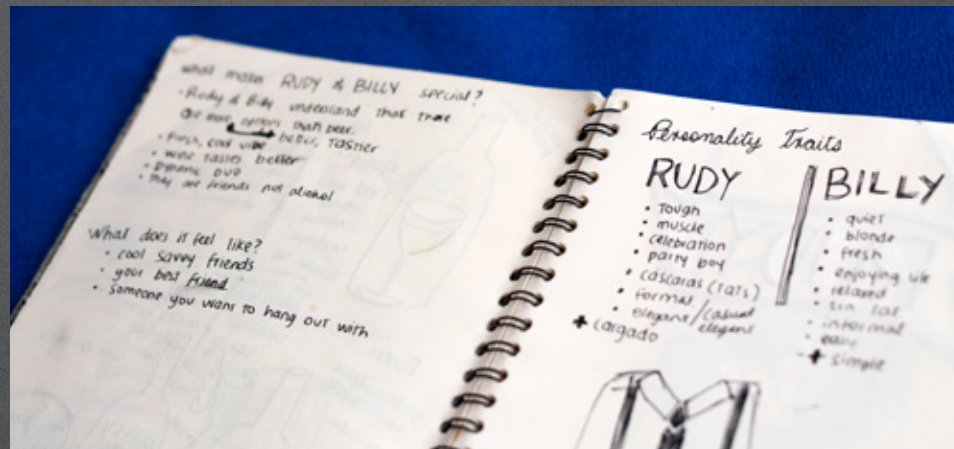 what makes RUDY & BILLY special?
• Rudy & Billy understand that there
are more options than beer.
better, tastier
• Fresh, cool vibe
• wine tastes better
• Dynamic duo
• They are friends not alcohol
What does it feel like?
• cool savvy friends
• your best friend
• someone you want to hang out with
Personality Traits
RUDY
• Tough
• muscle
• celebration
• party boy
• cáscaras (rats)
• formal
• elegant/casual
elegant
+ cargado
BILLY
• quiet
• blonde
• fresh
• enjoying life
• relaxed
• informal
• easy
• + simple